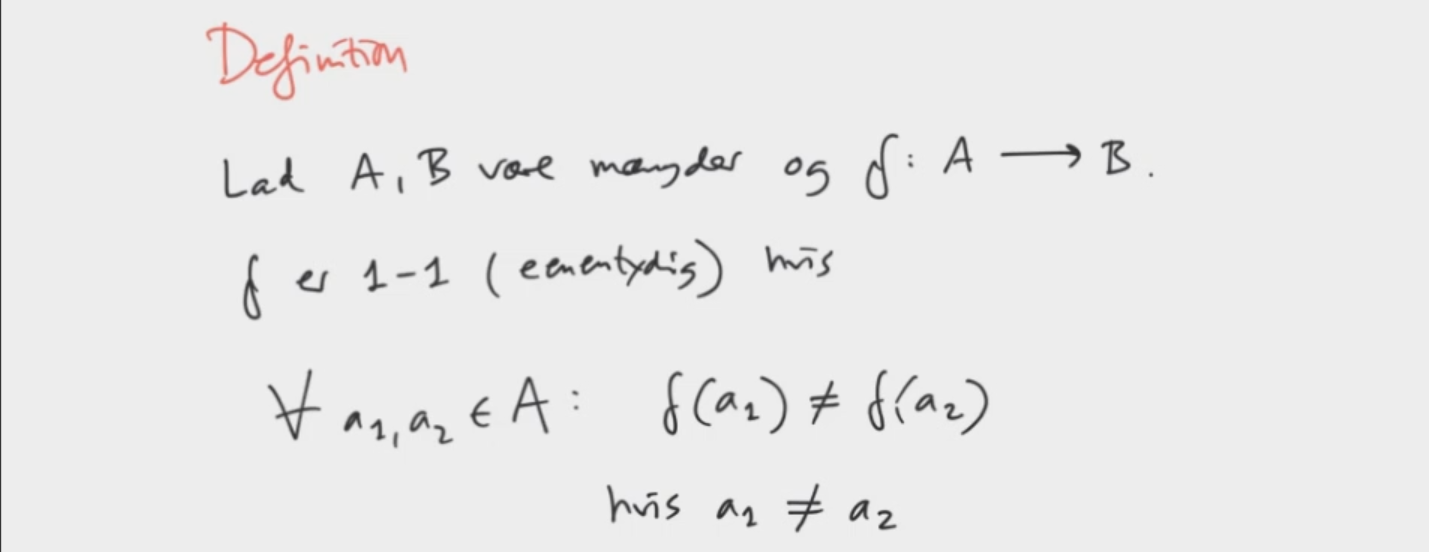 Definition
Lad A, B være mængder og f: A → B.
f er 1-1 (enentydig) hvis
∀ a₁, a₂ ∈ A: f(a₁) ≠ f(a₂)
hvis a₁ ≠ a₂